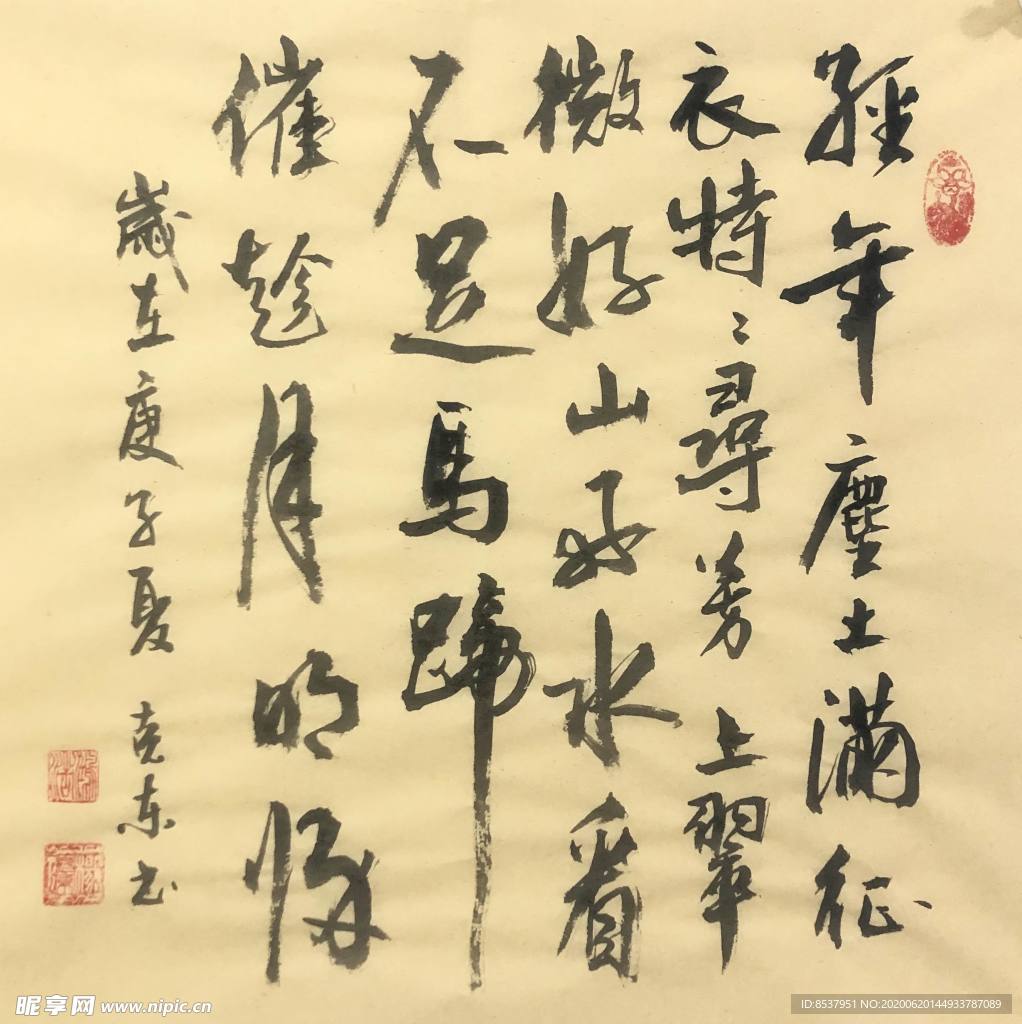 經年塵土滿征
衣特〻尋芳上翠
微好山好水看
不足馬蹄
催趁月明歸
歲在庚子夏 克东书
昵享网 www.nipic.cn
ID:8537951 NO:20200620144933787089